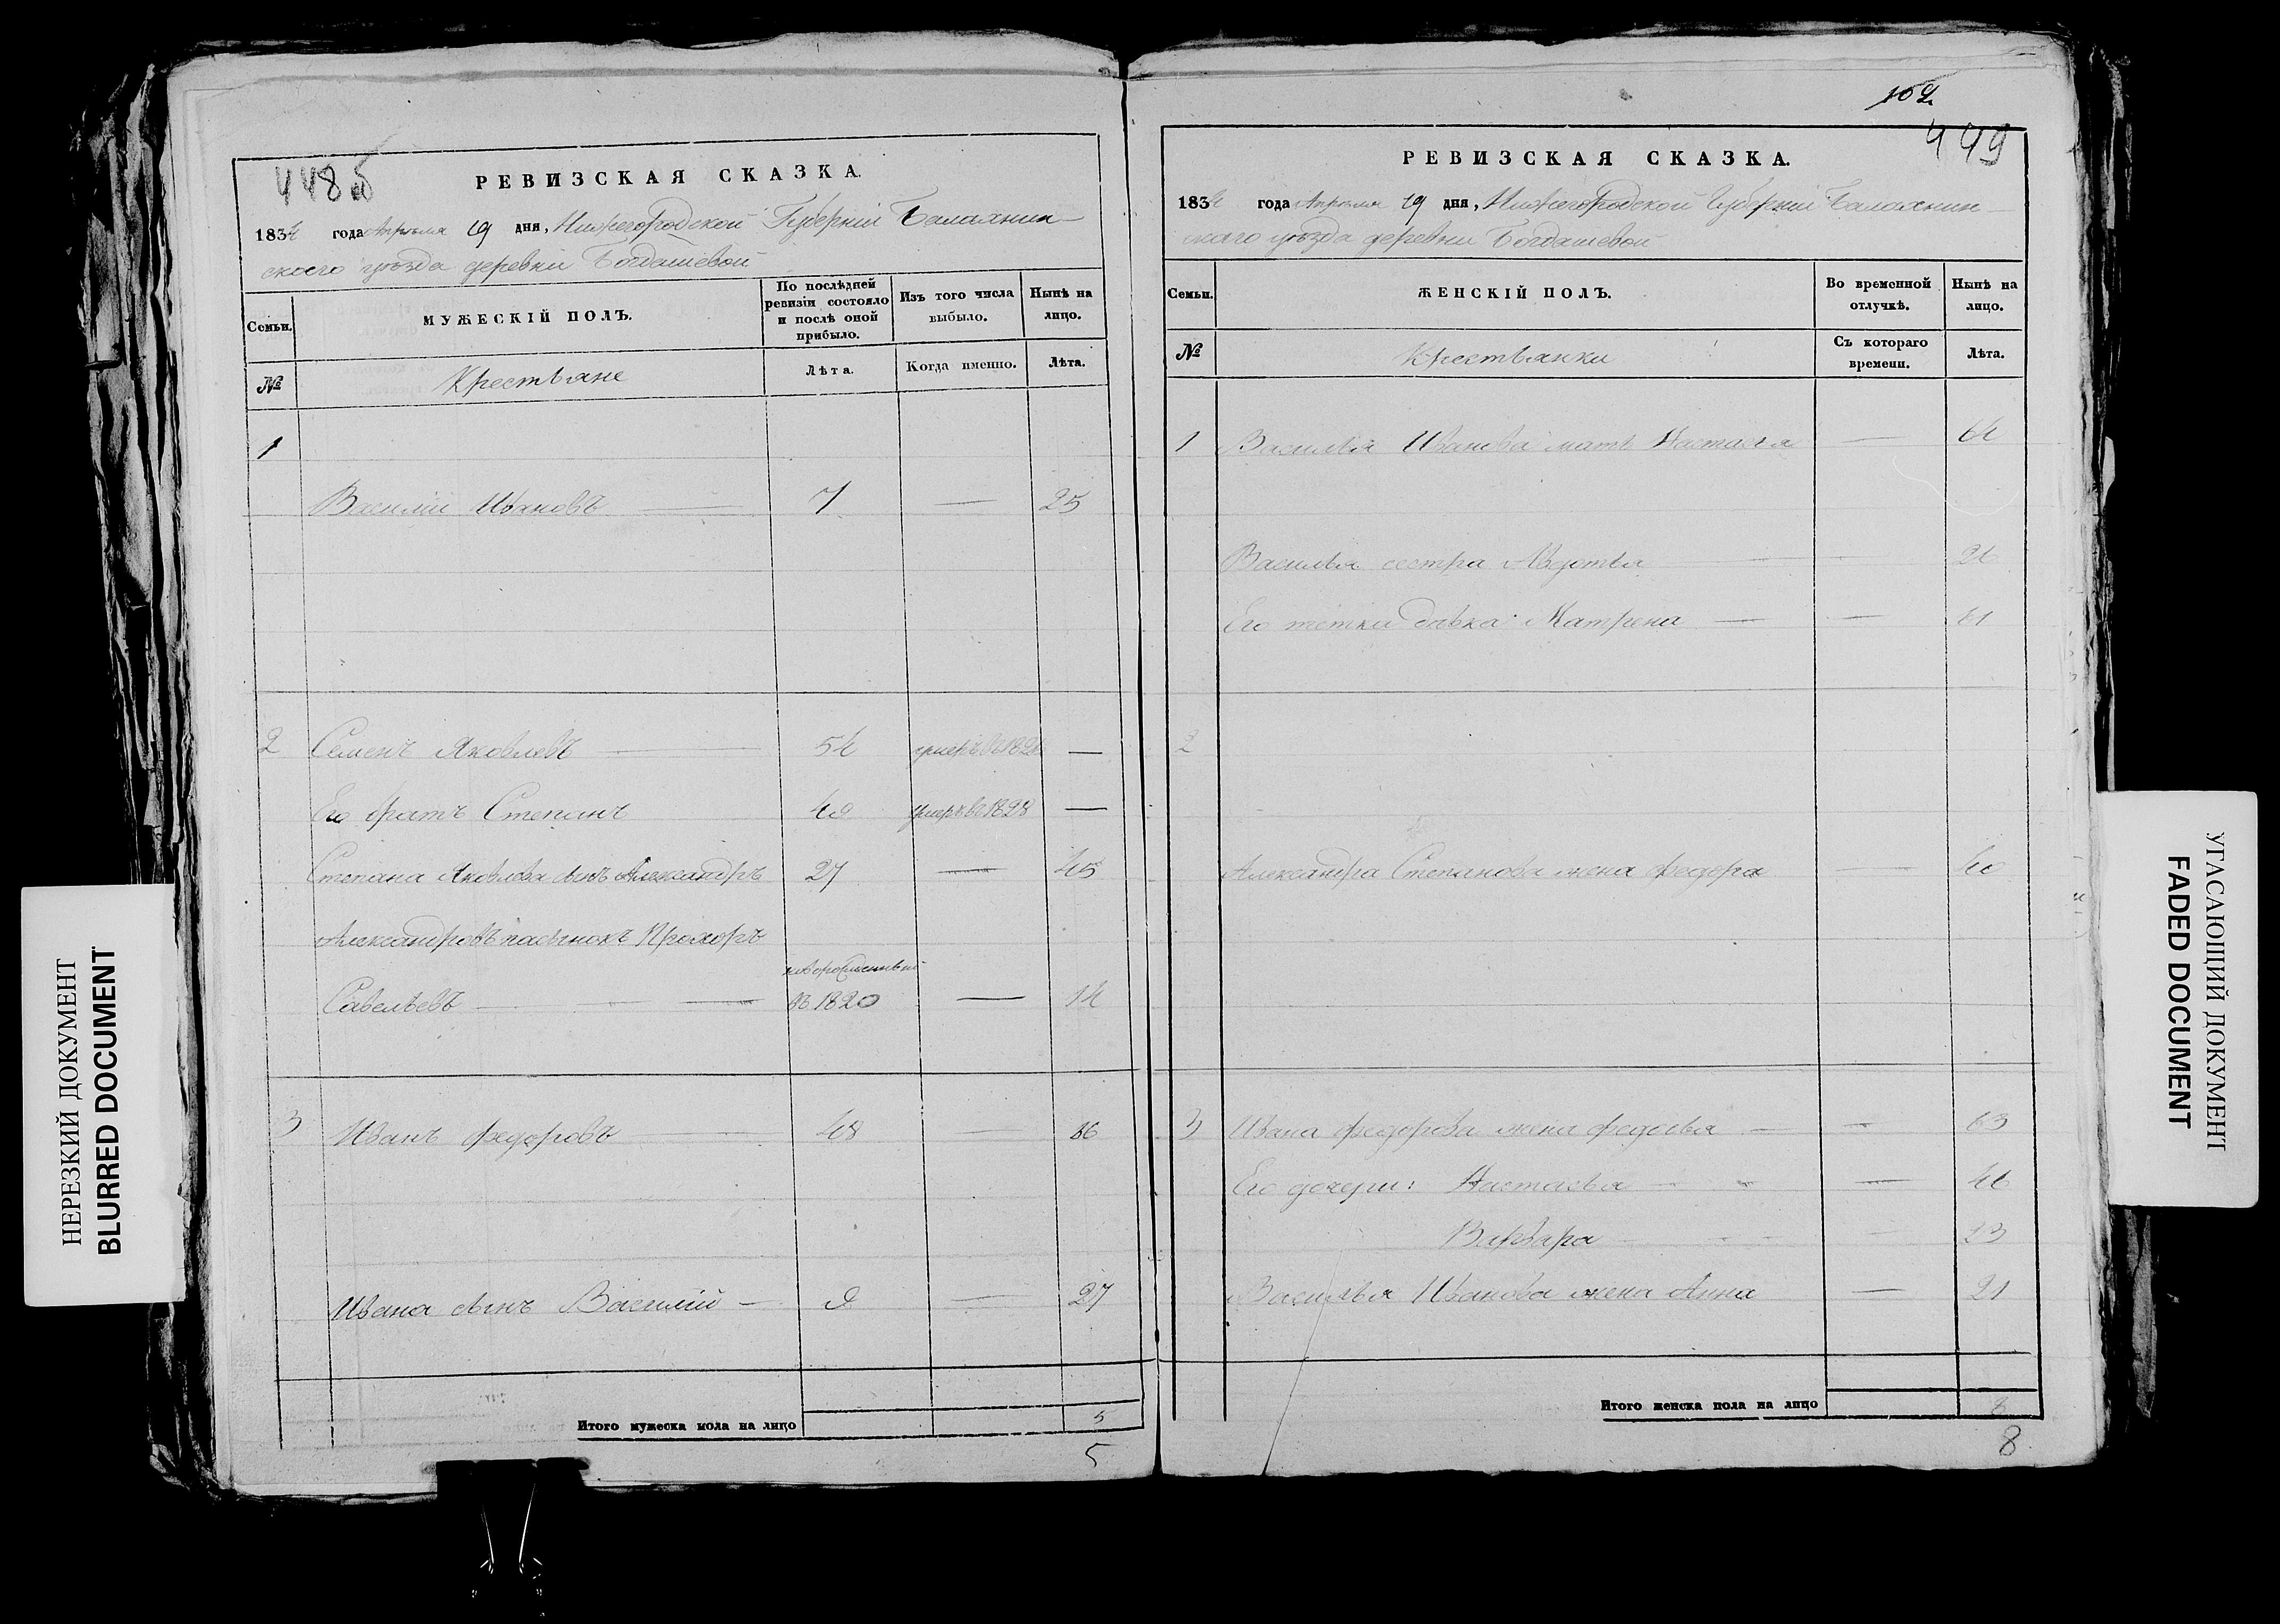 448об
РЕВИЗСКАЯ СКАЗКА.
1834 года Апреля 19 дня, Нижегородской Губерніи Балахнин
скаго уѣзда деревни Богдашевой
Семьи.
МУЖЕСКІЙ ПОЛЪ.
По послѣдней ревизіи состояло и послѣ оной прибыло.
Изъ того числа выбыло.
Нынѣ на лицо.
№ Крестьяне Лѣта. Когда именно. Лѣта.
1
Василій Ивановъ — 7 — 25
2 Семенъ Яковлевъ — 54 умеръ въ —
Его братъ Степанъ умеръ въ 1828 —
Степана Яковлева сынъ Александръ 27 — 45
Александровъ пасынокъ Прохоръ
новорожденный
Савельевъ — въ 1820 — 14
3 Иванъ Федоровъ — 48 — 66
Ивана сынъ Василій — 9 — 27
Итого мужеска пола на лицо 5
5
102
449
РЕВИЗСКАЯ СКАЗКА.
1834 года Апреля 19 дня, Нижегородской Губерніи Балахнин
скаго уѣзда деревни Богдашевой
Семьи.
ЖЕНСКІЙ ПОЛЪ.
Во временной отлучкѣ.
Нынѣ на лицо.
№ Крестьянки Съ котораго времени. Лѣта.
1 Василья Иванова мать Настасья —
Василья сестра Авдотья —
Его тётка дѣвка Матрена — —
2
Александра Степанова жена Федора — 40
3 Ивана Федорова жена Федосья — — 63
Его дочери: Настасья — — 46
Варвара — 23
Василья Иванова жена Анна — 21
Итого женска пола на лицо 8
8
НЕРЕЗКИЙ ДОКУМЕНТ
BLURRED DOCUMENT
УГАСАЮЩИЙ ДОКУМЕНТ
FADED DOCUMENT